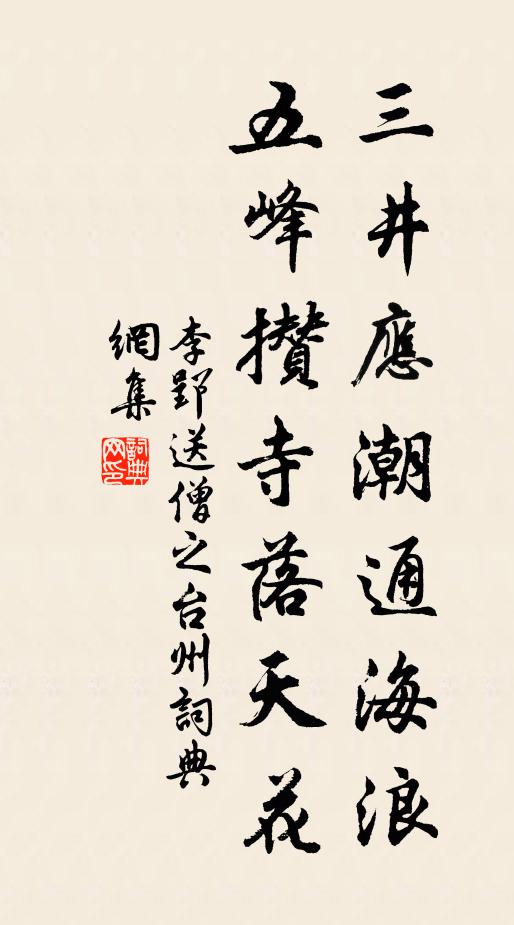 三井應潮通海浪
五峰攢寺落天花
李郢送僧之台州詞典
網集
詞典網印